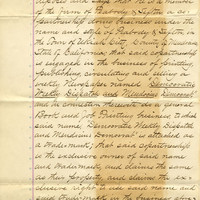 deposes and says that he is a member
of the firm of Peabody & Leyton a co-
partnership doing business under the
name and style of Peabody & Leyton in
the Town of Ukiah City, County of Mendocino
State of California, that said copartnership
is engaged in the business of printing,
publishing, circulating and selling a
weekly Newspaper named Democratic
Weekly Dispatch and Mendocino Democrat
and in connection therewith do a general
Book and Job Printing business. That
said name, Democratic Weekly Dispatch
and Mendocino Democrat is attached as
a trademark; that said copartnership
is the exclusive owner of said name
and trademark, and claims the same
as their property, and claims the ex-
clusive right to use said name and
said trademark in the business above